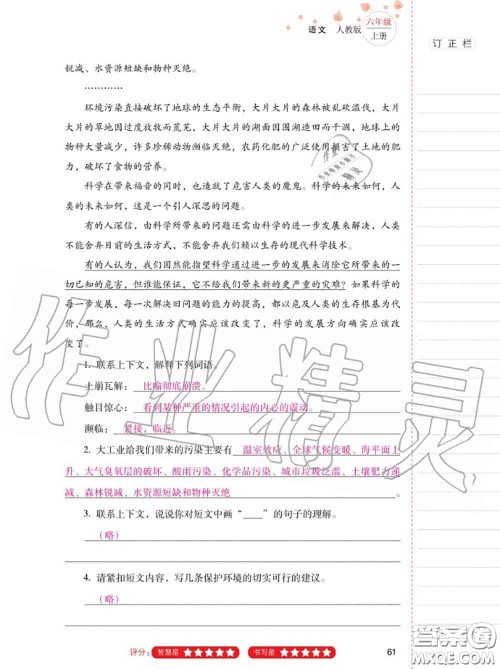 语文 人教版 六年级上册
订正栏
锐减、水资源短缺和物种灭绝。
…………
环境污染直接破坏了地球的生态平衡，大片大片的森林被乱砍滥伐，大片
大片的草地因过度放牧而荒芜，大片大片的湖面因围湖造田而干涸，地球上的
物种大量减少，许多珍稀动物濒临灭绝，农药化肥的广泛使用损害了土地的肥
力，破坏了食物的营养。
科学在带来福音的同时，也造就了危害人类的魔鬼。科学的未来如何，人
类的未来如何，这是一个引人深思的问题。
有的人深信，由科学所带来的问题还需由科学的进一步发展来解决，人类
不能舍弃目前的生活方式，不能舍弃我们赖以生存的现代科学技术。
有的人认为，我们固然能指望科学通过进一步的发展来消除它所带来的一
切已知的危害，但谁能保证，它不给我们带来新的更严重的灾难？如果科学的
每一步发展，每一次解决旧问题的能力的提高，都以危及人类的生存根基为代
价，那么，人类的生活方式确实应该改变了，科学的发展方向确实应该改
变了。
1. 联系上下文，解释下列词语。
土崩瓦解：比喻彻底崩溃。
触目惊心：看到某种严重的情况引起的内心的震动。
濒临：紧接，临近。
2. 大工业给我们带来的污染主要有 温室效应、全球气候变暖、海平面上
升、大气臭氧层的破坏、酸雨污染、化学品污染、城市垃圾泛滥、土壤肥力递
减、森林锐减、水资源短缺和物种灭绝
3. 联系上下文，说说你对短文中画“____”的句子的理解。
（略）
4. 请紧扣短文内容，写几条保护环境的切实可行的建议。
（略）
评分： 智慧星 ★★★★★ 书写星 ★★★★★
61
作业精灵
答案圈
MXQE.COM